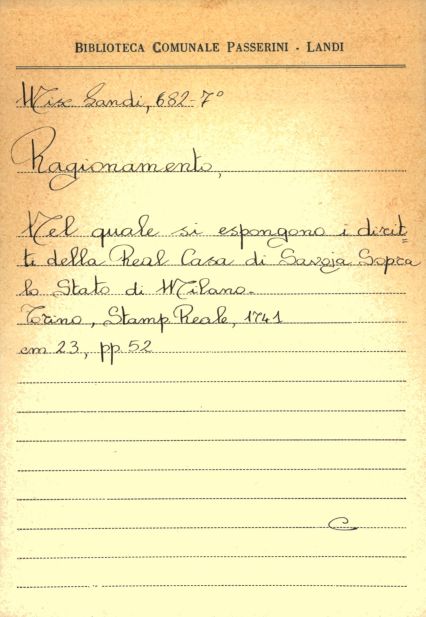 BIBLIOTECA COMUNALE PASSERINI - LANDI
Misc Landi, 682-7°
Ragionamento,
Nel quale si espongono i dirit=
ti della Real Casa di Savoja Sopra
lo Stato di Milano.
Torino, Stamp. Reale, 1741
cm 23, pp 52
C